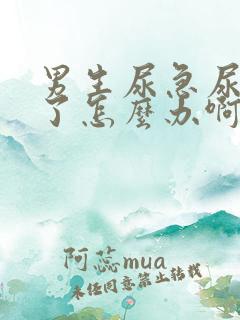 男生尿急尿
了怎麼办啊
阿蕊mua
未经同意禁止转载